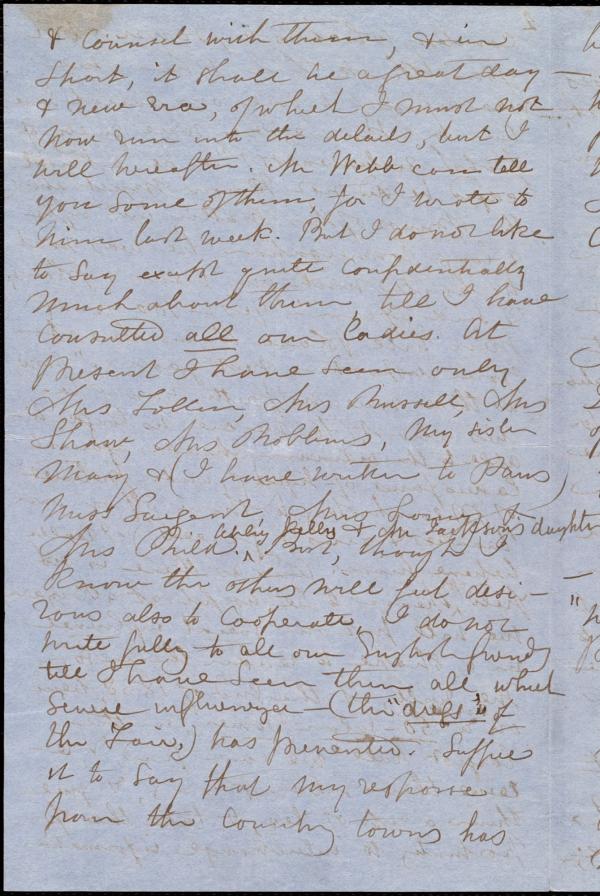 & counsel with them, & in
short, it shall be a great day —
& new era, of which I must not
now run into the details, but I
will hereafter. Mr Webb can tell
you some of them, for I wrote to
him last week. But I do not like
to say except quite confidentially
much about them, till I have
consulted all our Ladies. At
present I have seen only
Mrs Follen, Mrs Russell, Mrs
Shaw, Mrs Robbins, my sister
Mary & (I have written to Paris)
Miss Sargent, Mrs Loring &
Abby Kelly & Mr Jackson's daughter
Mrs Child. ^ But, though I
know the others will feel desi-
rous also to cooperate, I do not
write fully to all our English friends
till I have seen them all, which
severe influenza — (the "dregs" of
the Fair,) has prevented. Suffice
it to say that my response
from the Country towns has